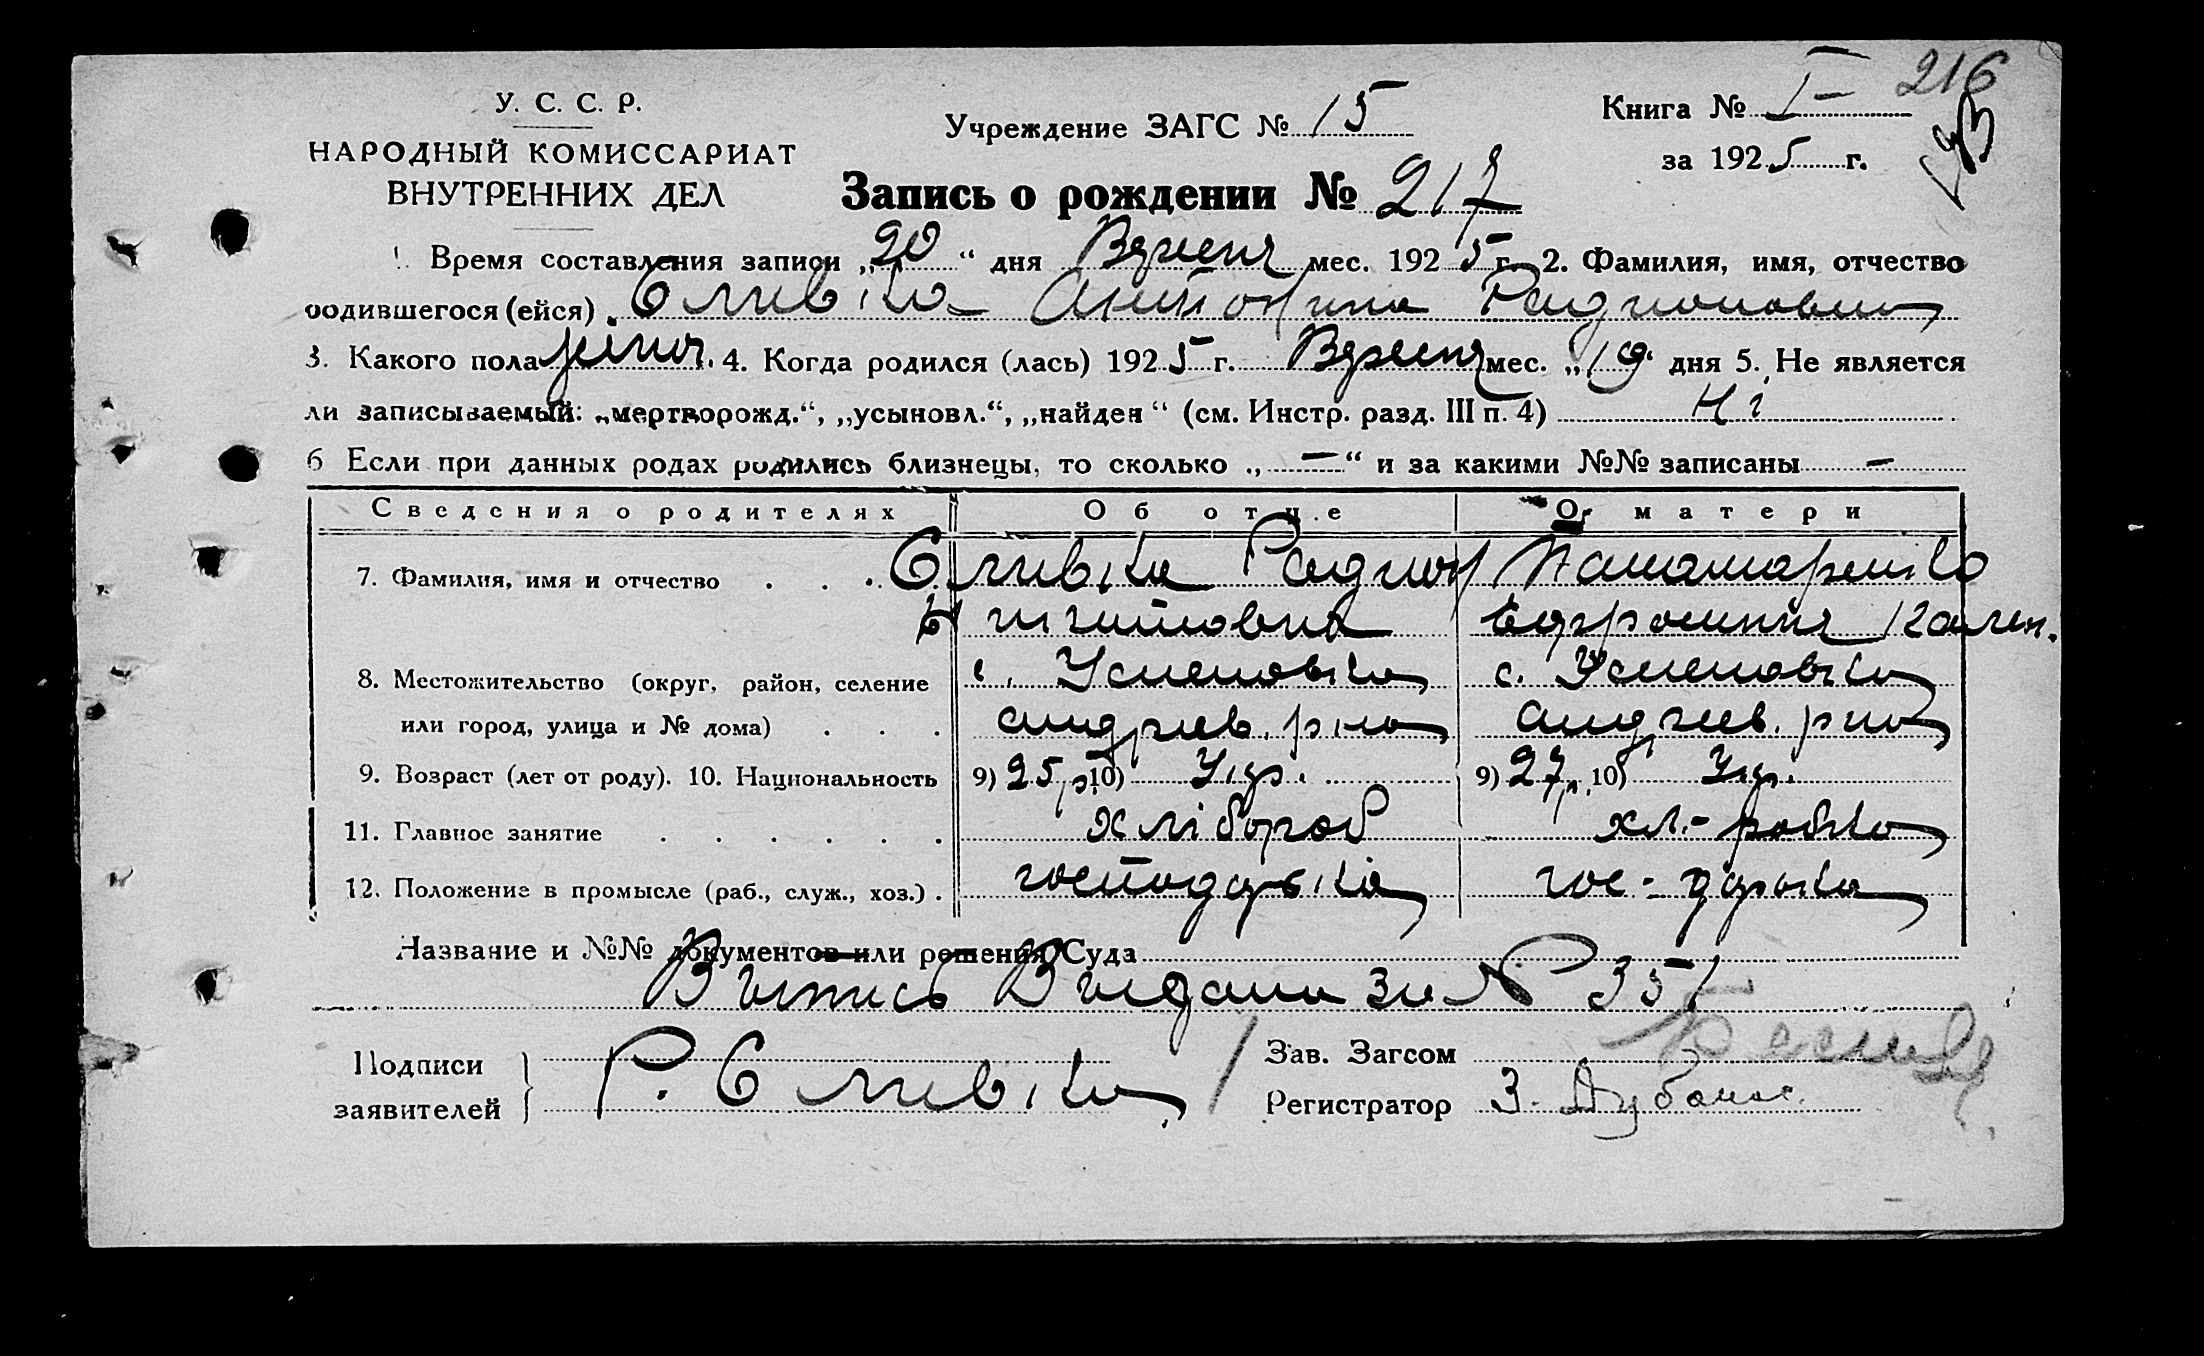 216
У. С. С. Р.
Учреждение ЗАГС № 15
Книга № I-
НАРОДНЫЙ КОМИССАРИАТ
за 1925 г.
ВНУТРЕННИХ ДЕЛ
Запись о рождении № 217
1. Время составления записи „20“ дня Вересня мес. 1925 г. 2. Фамилия, имя, отчество
родившегося (ейся) Сливка Антонина Радионовна
3. Какого пола жіноч. 4. Когда родился (лась) 1925 г. Вересня мес. „19“ дня 5. Не является
ли записываемый: „мертворожд.“, „усыновл.“, „найден“ (см. Инстр. разд. III п. 4) Ні
6 Если при данных родах родились близнецы, то сколько „—“ и за какими №№ записаны —
Сведения о родителях Об отце О матери
7. Фамилия, имя и отчество . . . Сливка Радион Паламаренко
Титович Ефросиния Калин.
8. Местожительство (округ, район, селение с. Успеновка с. Успеновка
или город, улица и № дома) . . . Андріев. р-на Андріев. р-на
9. Возраст (лет от роду). 10. Национальность 9) 25 р. 10) Укр. 9) 27 р. 10) Укр.
11. Главное занятие . . . . . . Хлібороб хл.-робка
12. Положение в промысле (раб., служ., хоз.) . господарка гос-дарка
Название и №№ документов или решения Суда
Витпись Видана за № 351
Подписи
заявителей } Р. Сливка
Зав. Загсом
Регистратор З.